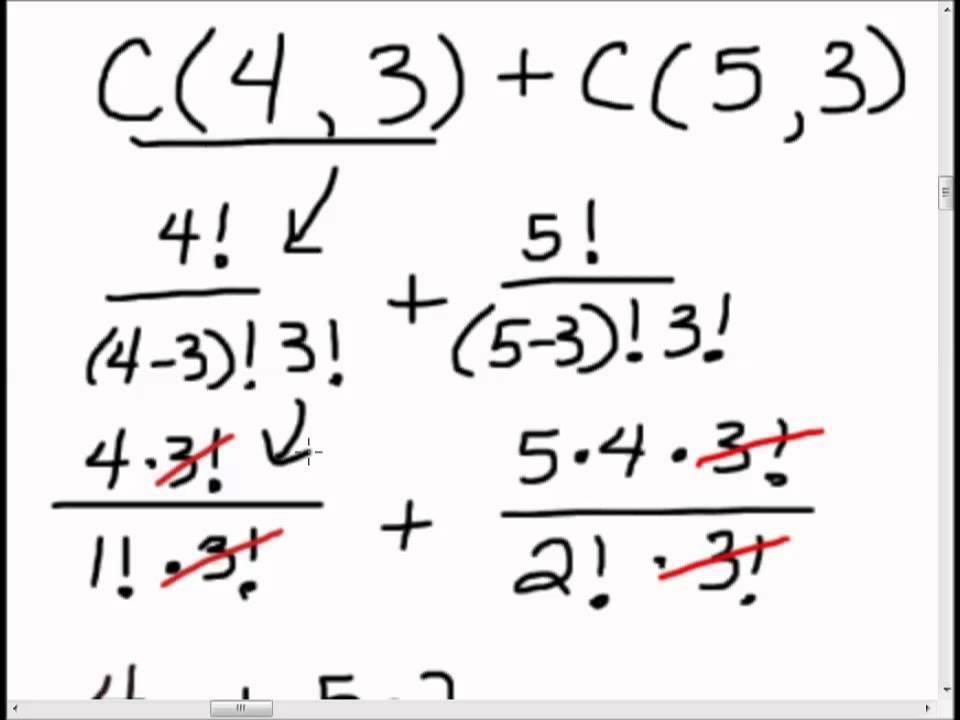 C(4,3) + C(5,3)
4! / (4-3)! 3! + 5! / (5-3)! 3!
4·3! / 1!·3! + 5·4·3! / 2!·3!
4 + 5·2